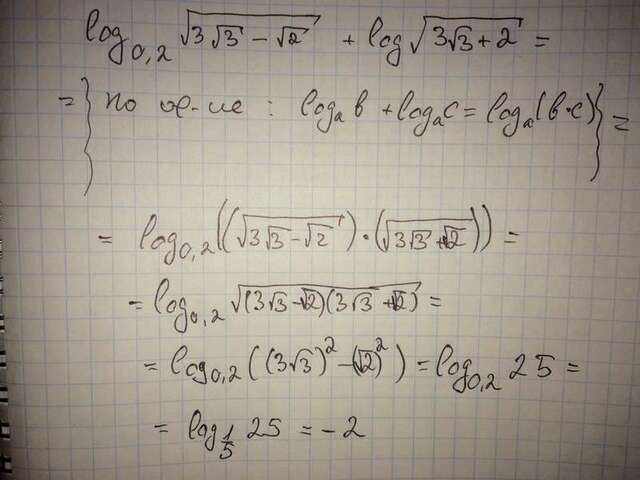 log₀,₂ √(3√3 − √2) + log √(3√3 + 2) =
= } по св-ве : logₐ b + logₐ c = logₐ (b · c) } =
= log₀,₂ ((√(3√3 − √2)) · (√(3√3 + √2))) =
= log₀,₂ √((3√3 − √2)(3√3 + √2)) =
= log₀,₂ ((3√3)² − (√2)²) = log₀,₂ 25 =
= log_(1/5) 25 = −2